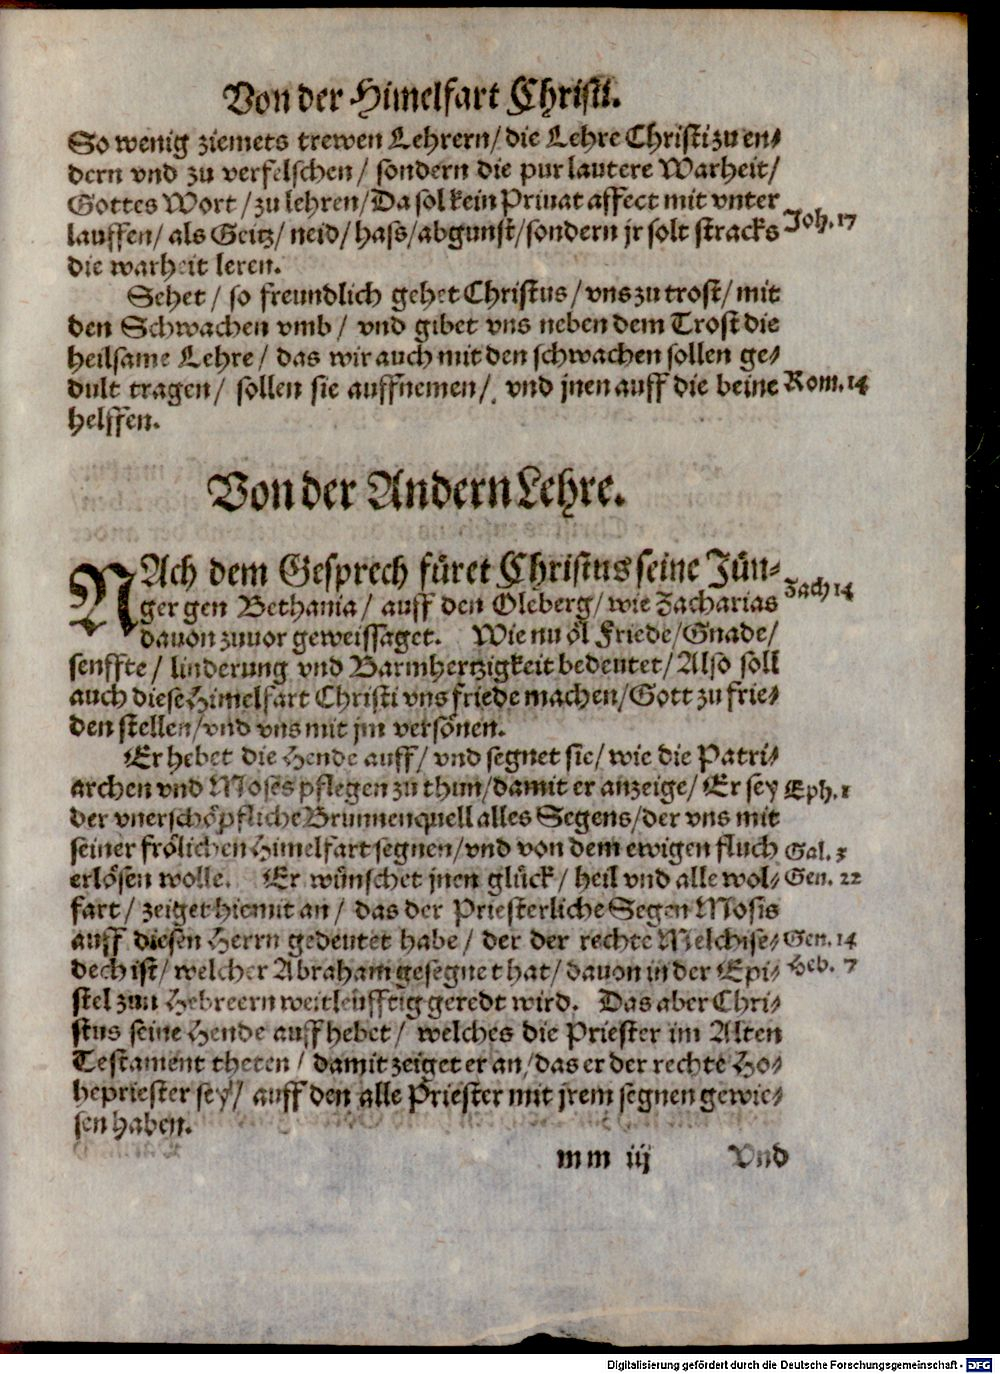 Von der Himelfart Christi.
So wenig ziemets trewen Lehrern/ die Lehre Christi zu en-
dern vnd zu verfelschen/ sondern die pur lautere Warheit/
Gottes Wort/ zu lehren/ Da sol kein Priuat affect mit vnter
lauffen/ als Geitz/ neid/ hass/ abgunst/ sondern jr solt stracks
Joh. 17
die warheit leren.
Sehet/ so freundlich gehet Christus/ vns zu trost/ mit
den Schwachen vmb/ vnd gibet vns neben dem Trost die
heilsame Lehre/ das wir auch mit den schwachen sollen ge-
dult tragen/ sollen sie auffnemen/ vnd jnen auff die beine
Rom. 14
helffen.
Von der Andern Lehre.
NAch dem Gesprech füret Christus seine Jün-
ger gen Bethania/ auff den Oleberg/ wie Zacharias
Zach 14
dauon zuuor geweissaget. Wie nu öl Friede/ Gnade/
senffte/ linderung vnd Barmhertzigkeit bedeutet/ Also soll
auch diese Himelfart Christi vns friede machen/ Gott zu frie-
den stellen/ vnd vns mit jm versönen.
Er hebet die Hende auff/ vnd segnet sie/ wie die Patri-
archen vnd Moses pflegen zu thun/ damit er anzeige/ Er sey
Eph. 1
der vnerschöpfliche Brunnenquell alles Segens/ der vns mit
seiner frölichen Himelfart segnen/ vnd von dem ewigen fluch
Gal. 3
erlösen wolle. Er wünschet jnen glück/ heil vnd alle wol-
Gen. 22
fart/ zeiget hiemit an/ das der Priesterliche Segen Mosis
auff diesen Herrn gedeutet habe/ der der rechte Melchise-
Gen. 14
dech ist/ welcher Abraham gesegnet hat/ dauon in der Epi-
Heb. 7
stel zun Hebreern weitleufftig geredt wird. Das aber Chri-
stus seine Hende auff hebet/ welches die Priester im Alten
Testament theten/ damit zeiget er an/ das er der rechte Ho-
hepriester sey/ auff den alle Priester mit jrem segnen gewie-
sen haben.
mm iij
Vnd
Digitalisierung gefördert durch die Deutsche Forschungsgemeinschaft - DFG